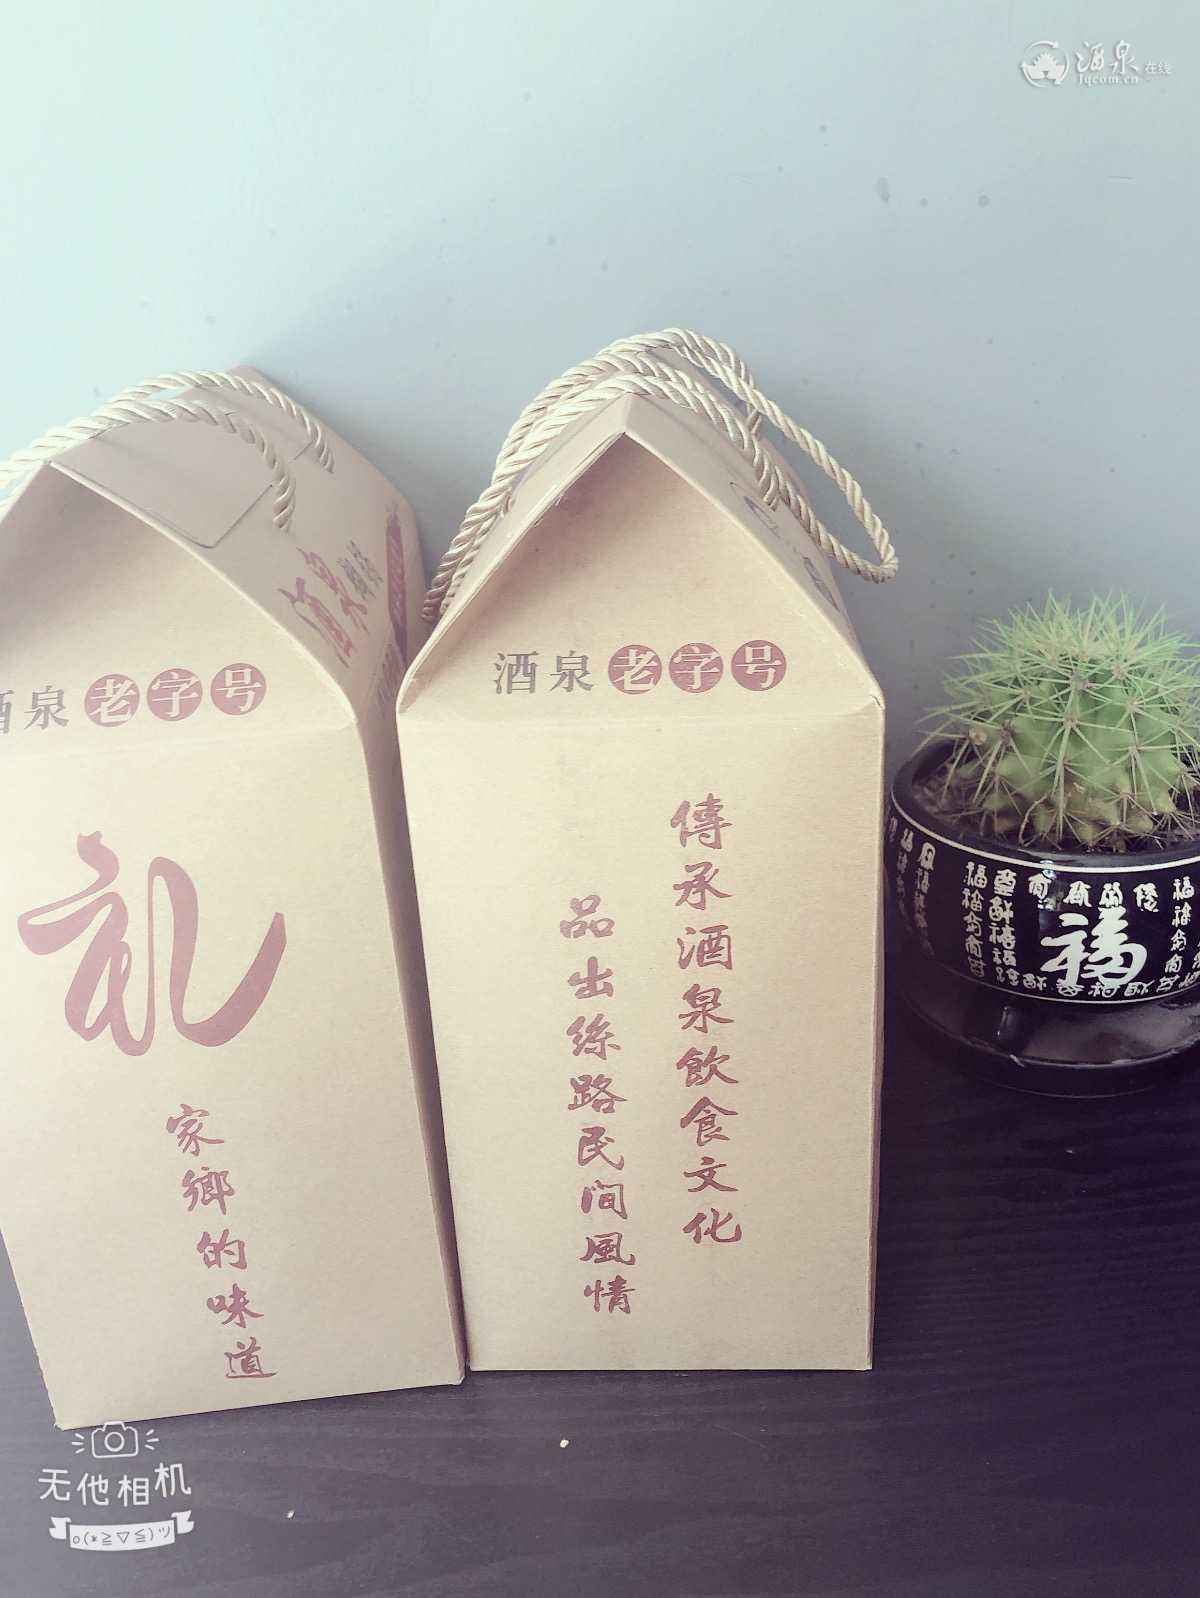 酒泉在线
Jqcom.cn
酒泉老字号
酒泉老字号
礼
家鄉的味道
傳承酒泉飲食文化
品出絲路民间風情
福
无他相机
o(*≧▽≦)ツ